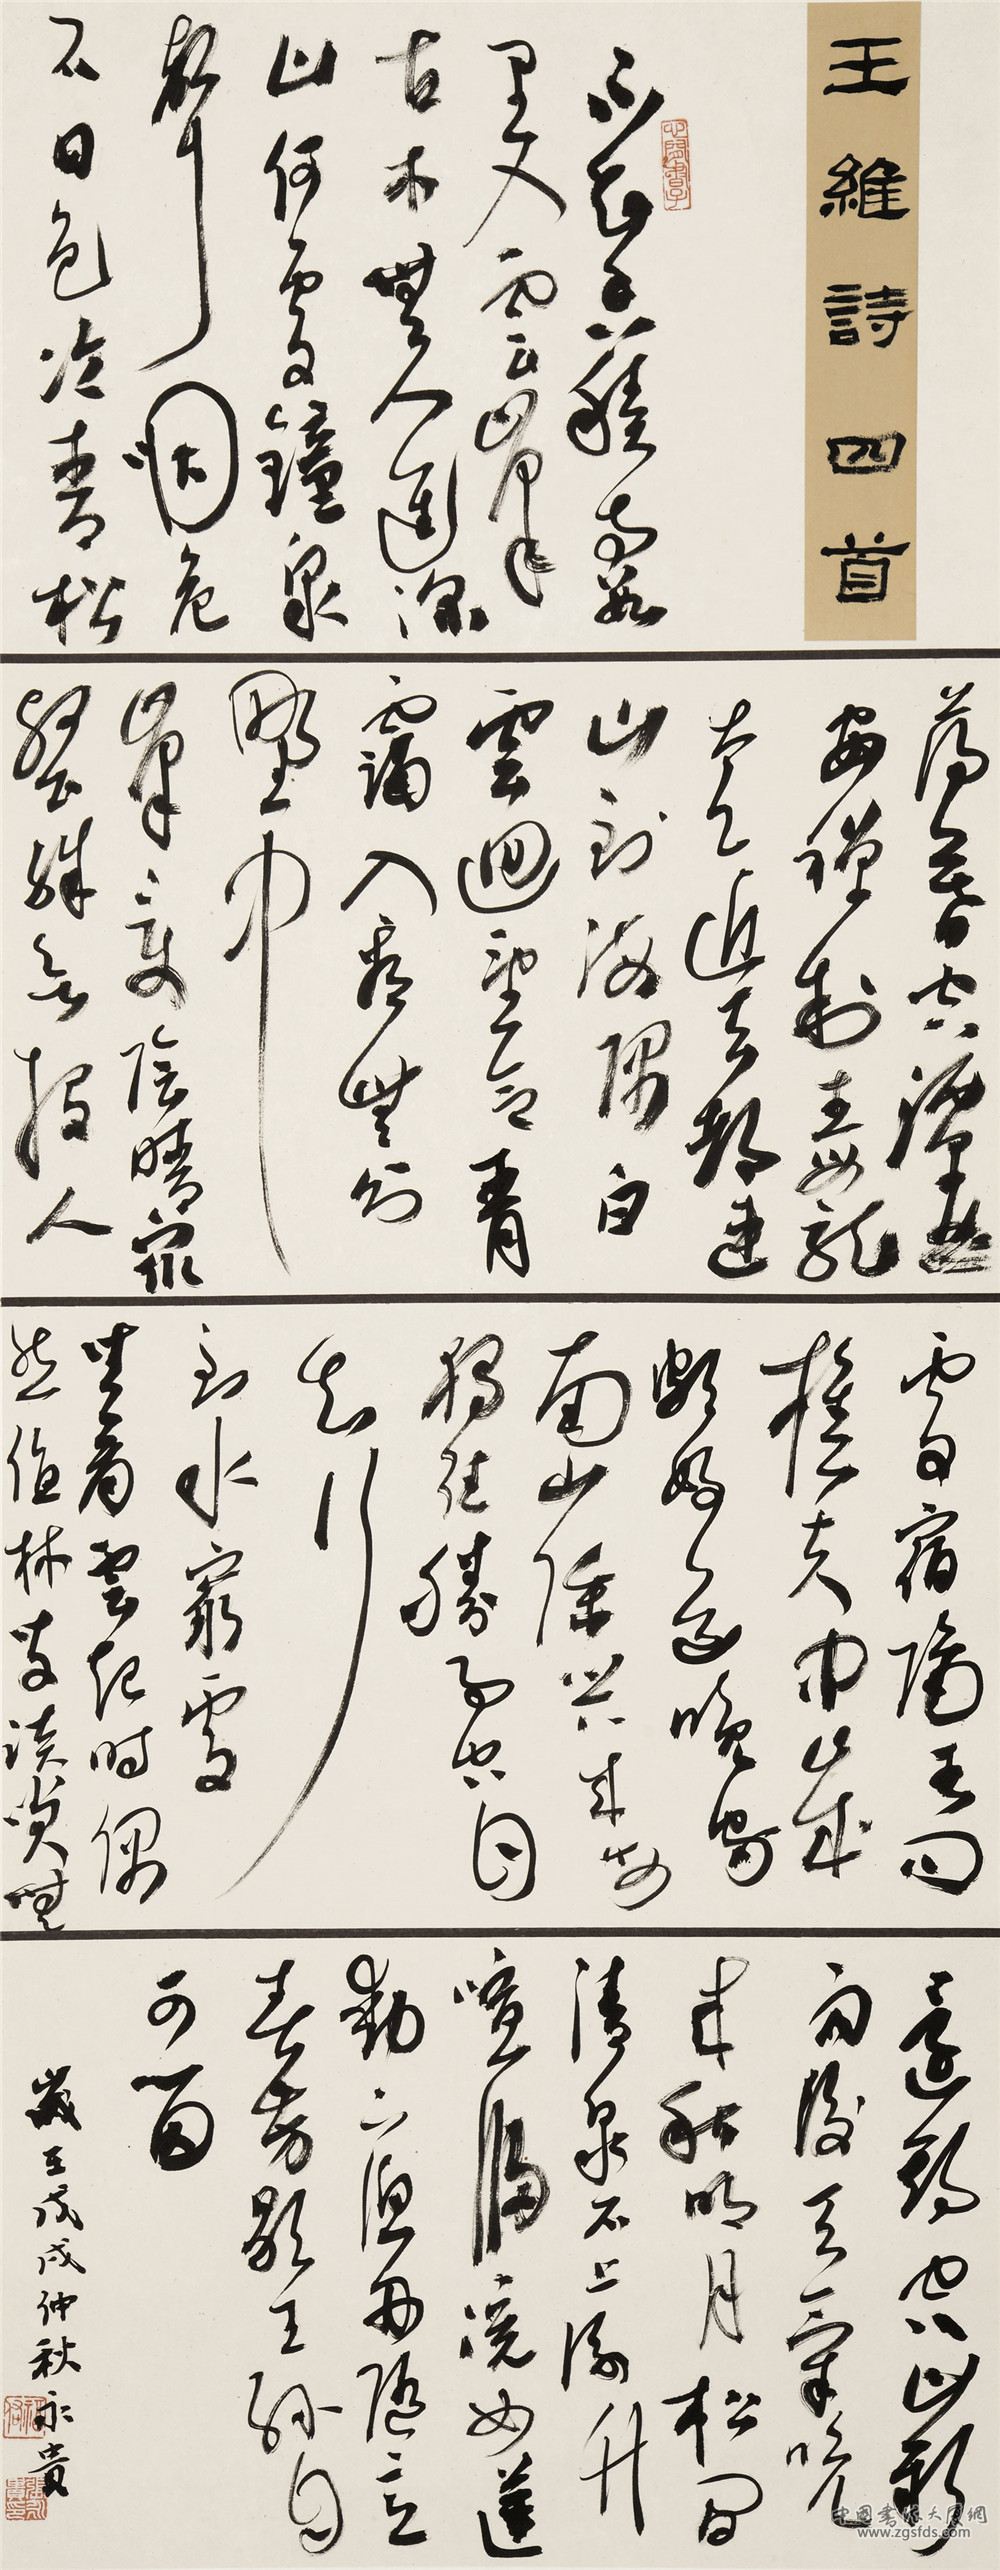 王維詩四首
不知香積寺數
里入雲峰
古木無人逕深
山何處鐘泉
聲咽危
石日色冷青松
薄暮空潭曲
安禪制毒龍
太乙近天都連
山到海隅白
雲迴望合青
靄入看無分
野中
峰變陰晴衆
壑殊欲投人
處宿隔水問
樵夫中歲
頗好道晚家
南山陲興來每
獨往勝事空自
知行
到水窮處
坐看雲起時偶
然值林叟談笑無
還期空山新
雨後天氣晚
來秋明月松間
清泉石上流竹
喧歸浣女蓮
動下漁舟隨意
春芳歇王孫自
可留
歲在戊戌仲秋永貴
www.zgsfds.com